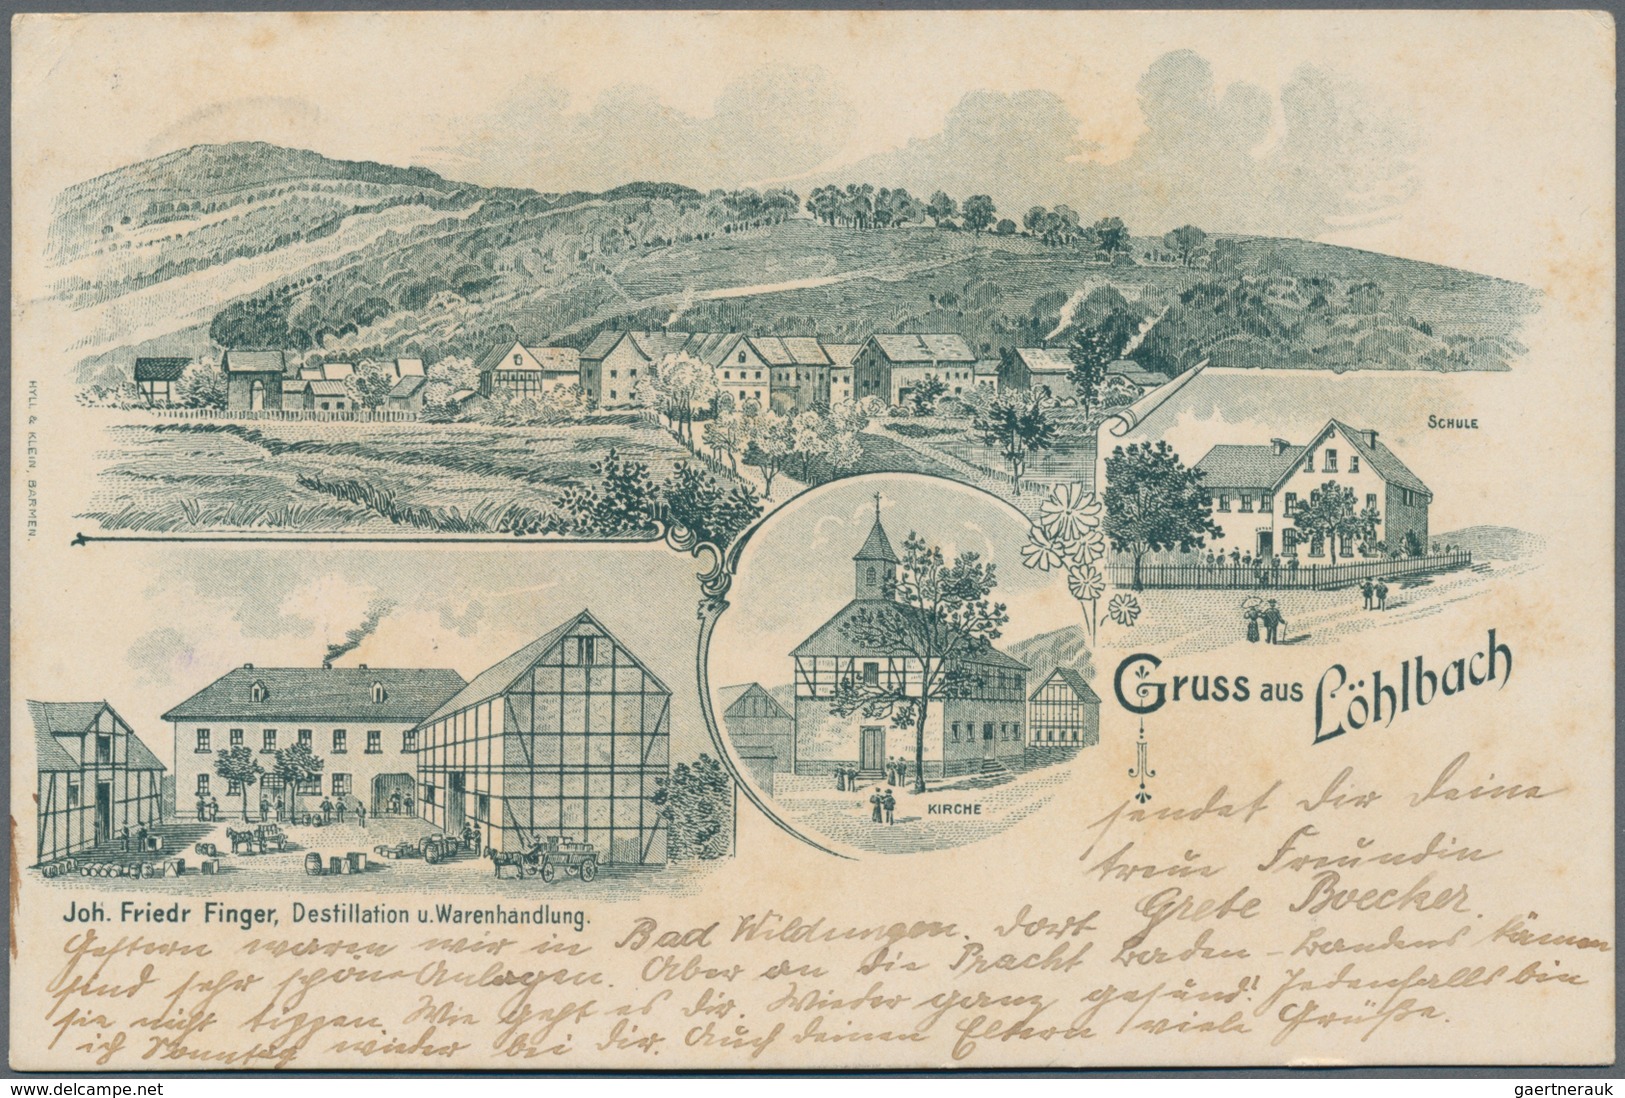 SCHULE
HYLL & KLEIN, BARMEN.
KIRCHE
Gruss aus Löhlbach
sendet dir deine
treue Freundin
Grete Boecker.
Joh. Friedr Finger, Destillation u. Warenhandlung.
Gestern waren wir in Bad Wildungen. Dort
sind sehr schöne Anlagen. Aber an die Pracht Baden-Badens kämen
sie nicht tippen. Wie geht es dir. Wieder ganz gesund! Jedenfalls bin
ich Sonntag wieder bei dir. Auch deinen Eltern viele Grüße.
gaertnerauk@delcampe.net
gaertnerauk